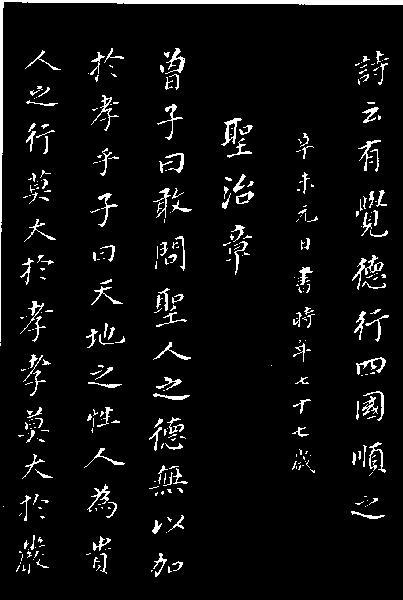 詩云有覺德行四國順之
辛未元日書時年七十七歲
聖治章
曾子曰敢問聖人之德無以加
於孝乎子曰天地之性人為貴
人之行莫大於孝孝莫大於嚴